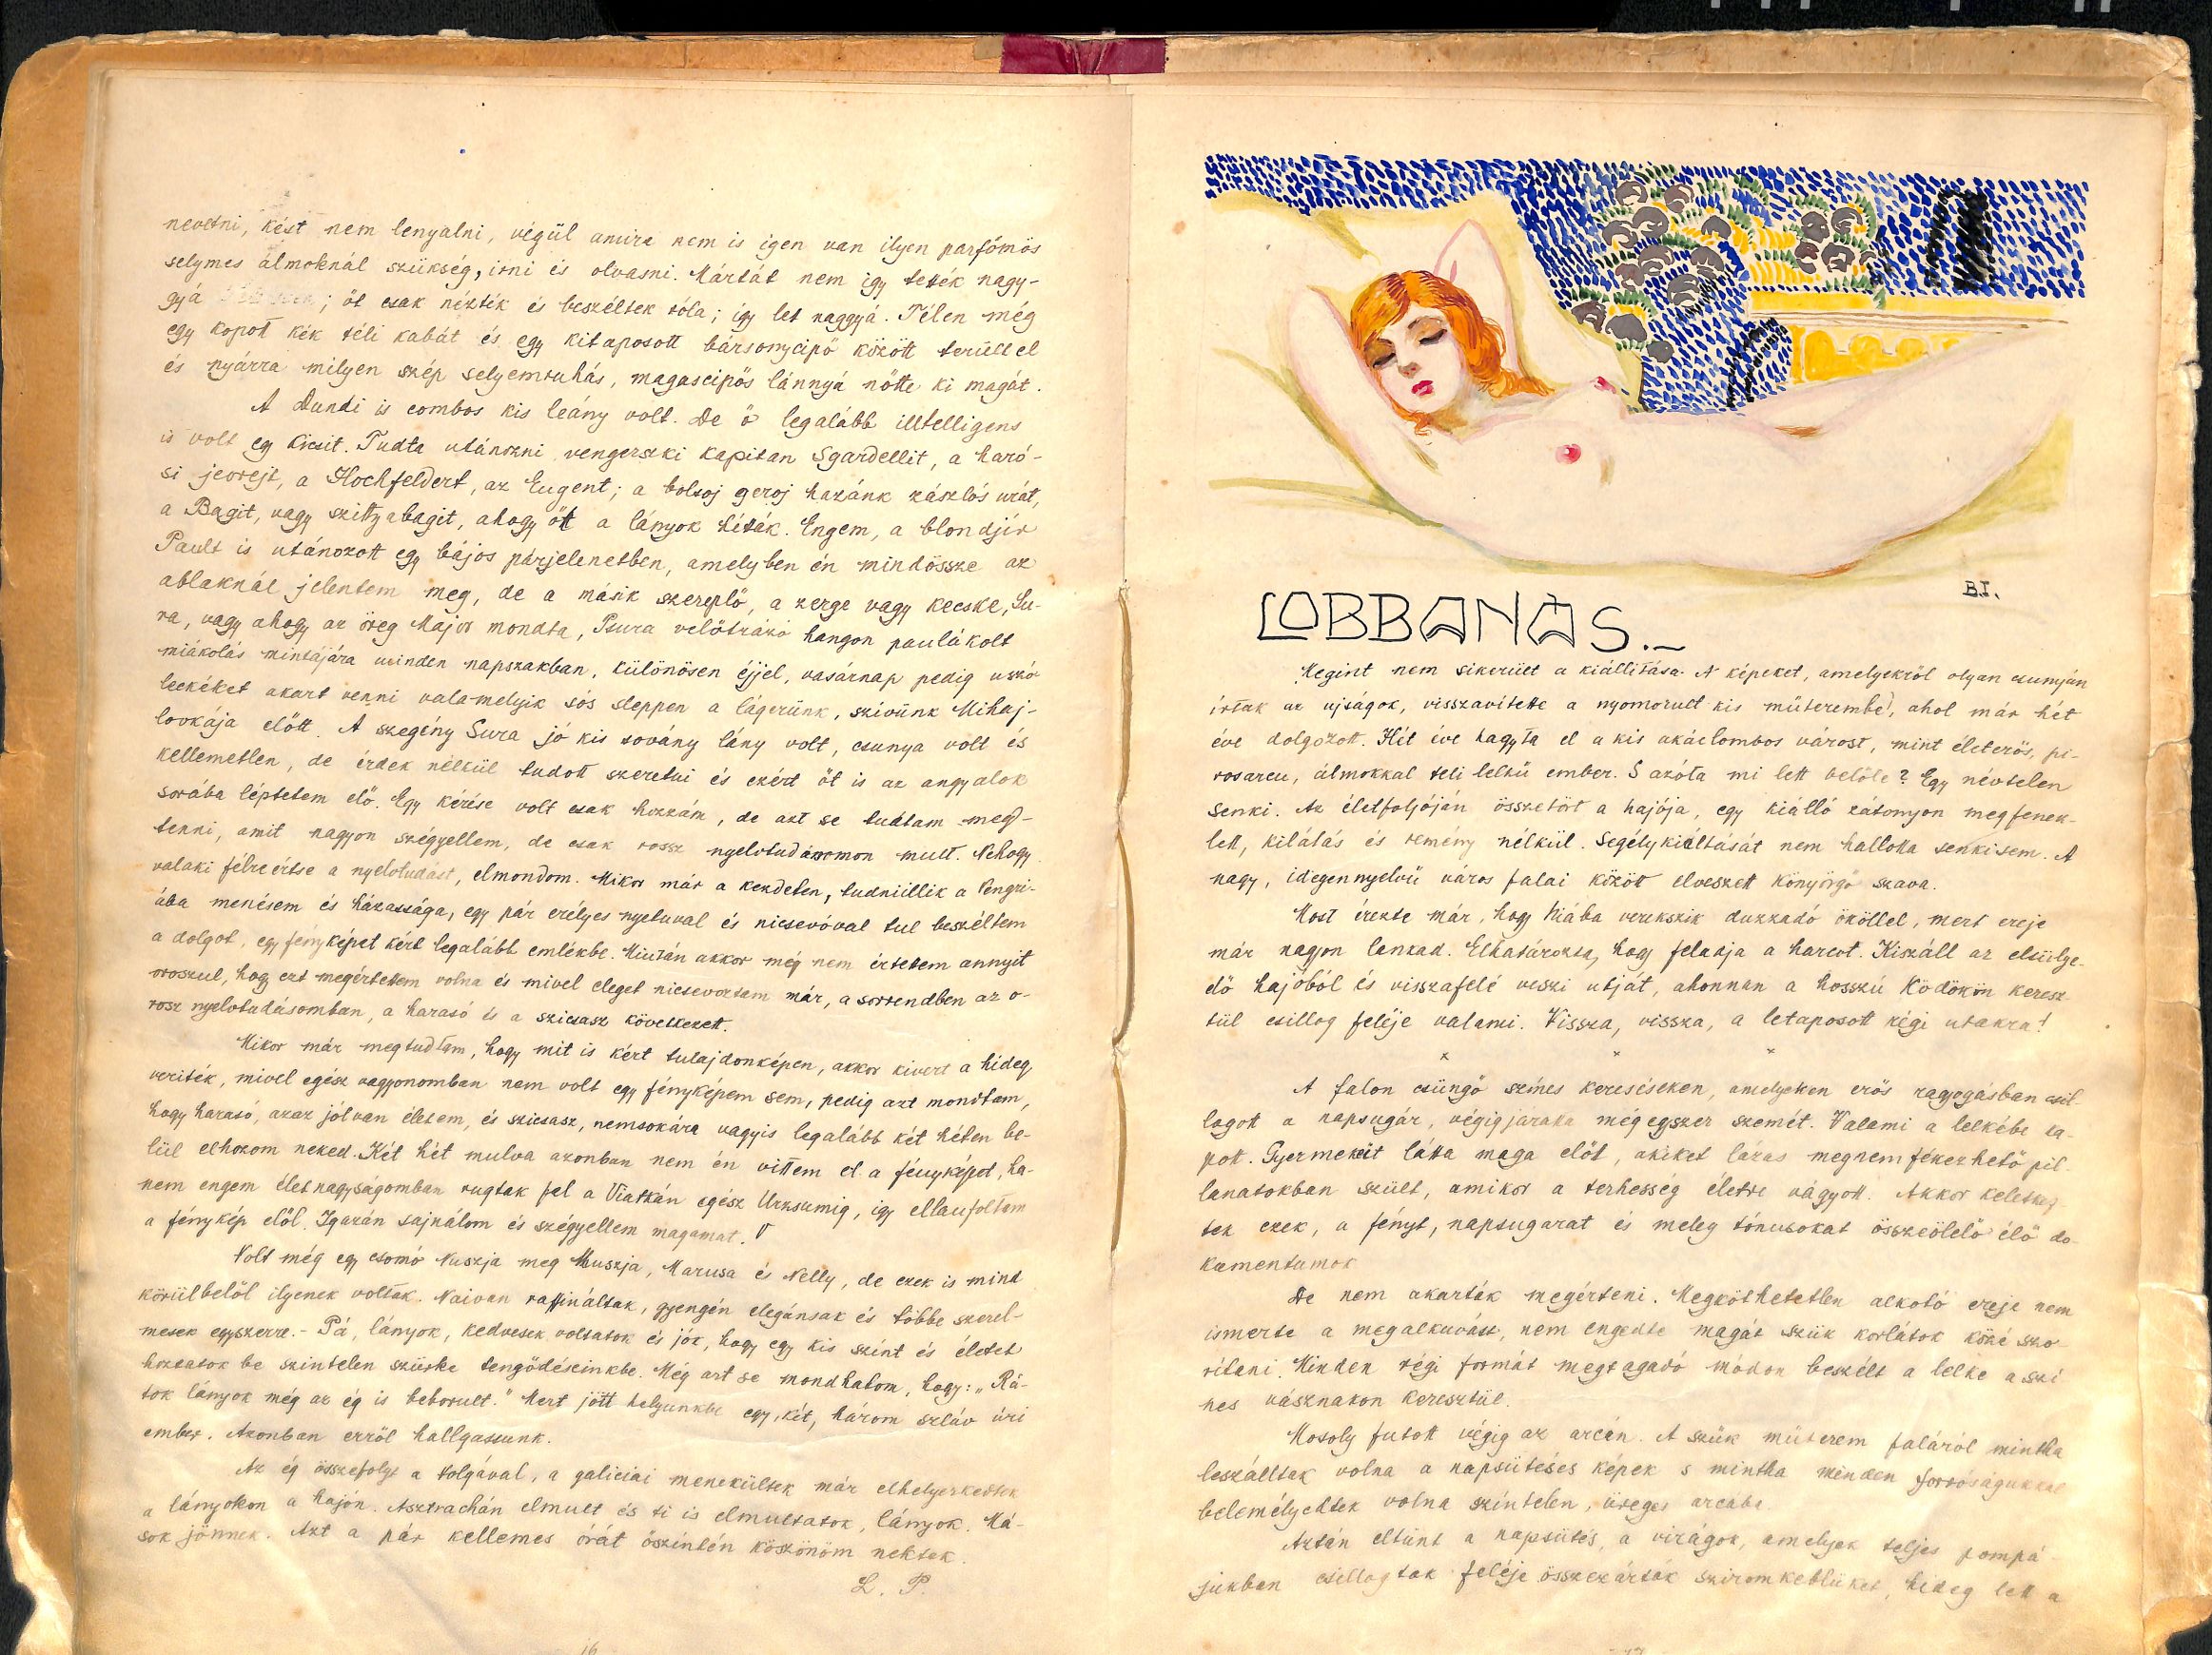 nevetni, kést nem lenyalni, végül amire nem is igen van ilyen parfómös
selymes álmoknál szükség, irni és olvasni. Mártát nem igy tették nagy-
gyá ; őt csak nézték és beszéltek róla; igy let naggyá. Télen még
egy kopott kék téli kabát és egy kitaposott bársonycipő között terült el
és nyárra milyen szép selyemruhás, magascipős lánnyá nőtte ki magát.
A Dundi is combos kis leány volt. De ő legalább illtelligens
is volt egy kicsit. Tudta utánozni vengerszki kapitan Sgardellit, a haró-
si jevrejt, a Hochfeldert, az Eugent; a bolsoj geroj hazánk zászlós urát,
a Bagit, vagy szittzabagit, ahogy őt a lányok hiták. Engem, a blondjir
Pault is utánozott egy bájos párjelenetben, amelyben én mindössze az
ablaknál jelentem meg, de a másik szereplő, a zerge vagy kecske, Su-
ra, vagy ahogy az öreg Major mondta, Psura velőtrázó hangon paulákolt
miákolás mintájára minden napszakban, különösen éjjel, vasárnap pedig uszó
leckéket akart venni valamelyik sós steppen a lágerünk, szivünk Mihaj-
lovkája előtt. A szegény Sura jó kis sovány lány volt, csunya volt és
kellemetlen, de érdek nélkül tudott szeretni és ezért őt is az angyalok
sorába léptetem elő. Egy kérése volt csak hozzám, de azt se tudtam meg-
tenni, amit nagyon szégyellem, de csak rossz nyelvtudásomon mult. Nehogy
valaki félreértse a nyelvtudást, elmondom. Mikor már a kezdeten, tudniillik a Vengri-
ába menésem és házassága, egy pár erélyes nyetuval és nicsevóval tul beszéltem
a dolgot, egy fényképet kért legalább emlékbe. Miután akkor még nem értettem annyit
oroszul, hogy ezt megértettem volna és mivel eleget nicsevoztam már, a sorrendben az o-
rosz nyelvtudásomban, a harasó és a szicsasz következett.
Mikor már megtudtam, hogy mit is kért tulajdonképen, akkor kivert a hideg
veriték, mivel egész vagyonomban nem volt egy fényképem sem, pedig azt mondtam,
hogy harasó, azaz jól van életem, és szicsasz, nemsokára vagyis legalább két héten be-
lül elhozom neked. Két hét mulva azonban nem én vittem el a fényképet, ha-
nem engem életnagyságomban rugtak fel a Viatkán egész Urzsumig, igy ellaufoltam
a fénykép elől. Igazán sajnálom és szégyellem magamat.
Volt még egy csomó Nuszja meg Muszja, Marusa és Nelly, de ezek is mind
körülbelöl ilyenek voltak. Naivan raffináltak, gyengén elegánsak és többe szerel-
mesek egyszerre. - Pá, lányok, kedvesek voltatok és jók, hogy egy kis szint és életet
hoztatok be szintelen szürke tengődéseinkbe. Még azt se mondhatom, hogy: „Rá-
tok lányok még az ég is beborult." Mert jött helyünkbe egy, két, három szláv úri
ember. Azonban erről hallgassunk.
Az ég összefolyt a Volgával, a galiciai menekültek már elhelyezkedtek
a lányokon a hajón. Asztrachán elmult és ti is elmultatok, lányok. Má-
sok jönnek. Azt a pár kellemes órát őszintén köszönöm nektek.
L. P.
16
B.I.
LOBBANÁS.-
Megint nem sikerült a kiállitása. A képeket, amelyekről olyan csunyán
írtak az ujságok, visszavitette a nyomorult kis műterembe, ahol már hét
éve dolgozott. Hét éve hagyta el a kis akáclombos várost, mint életerős, pi-
rosarcu, álmokkal teli lelkü ember. S azóta mi lett belőle? Egy névtelen
senki. Az életfolyóján összetört a hajója, egy kiálló zátonyon megfenek-
lett, kilátás és remény nélkül. Segélykiáltását nem hallotta senkisem. A
nagy, idegennyelvü város falai között elveszett könyörgő szava.
Most érezte már, hogy hiába verekszik duzzadó ököllel, mert ereje
már nagyon lankad. Elhatározta, hogy feladja a harcot. Kiszáll az elsülye-
dő hajóból és visszafelé veszi utját, ahonnan a hosszú ködökön keresz-
tül csillog feléje valami. Vissza, vissza, a letaposott régi utakra!
x x x
A falon csüngő szines kereséseken, amelyeken erős ragyogásban csil-
logott a napsugár, végigjáratta mégegyszer szemét. Valami a lelkébe ka-
pott. Gyermekeit látta maga előt, akiket lázas megnemfékezhető pil-
lanatokban szült, amikor a terhesség életre vágyott. Akkor keletkez-
tek ezek, a fényt, napsugarat és meleg tónusokat összeölelő élő do-
kumentumok
De nem akarták megérteni. Megköthetetlen alkotó ereje nem
ismerte a megalkuvást, nem engedte magát szük korlátok közé szo-
ritani. Minden régi formát megtagadó módon beszélt a lelke a szi-
nes vásznakon keresztül.
Mosoly futott végig az arcán. A szük müterem faláról mintha
leszálltak volna a napsütéses képek s mintha minden forróságukkal
belemélyedtek volna szintelen, üreges arcába.
Aztán eltünt a napsütés, a virágok, amelyek teljes pompá-
jukban csillogtak feléje összezárták szirom keblüket, hideg lett a
17